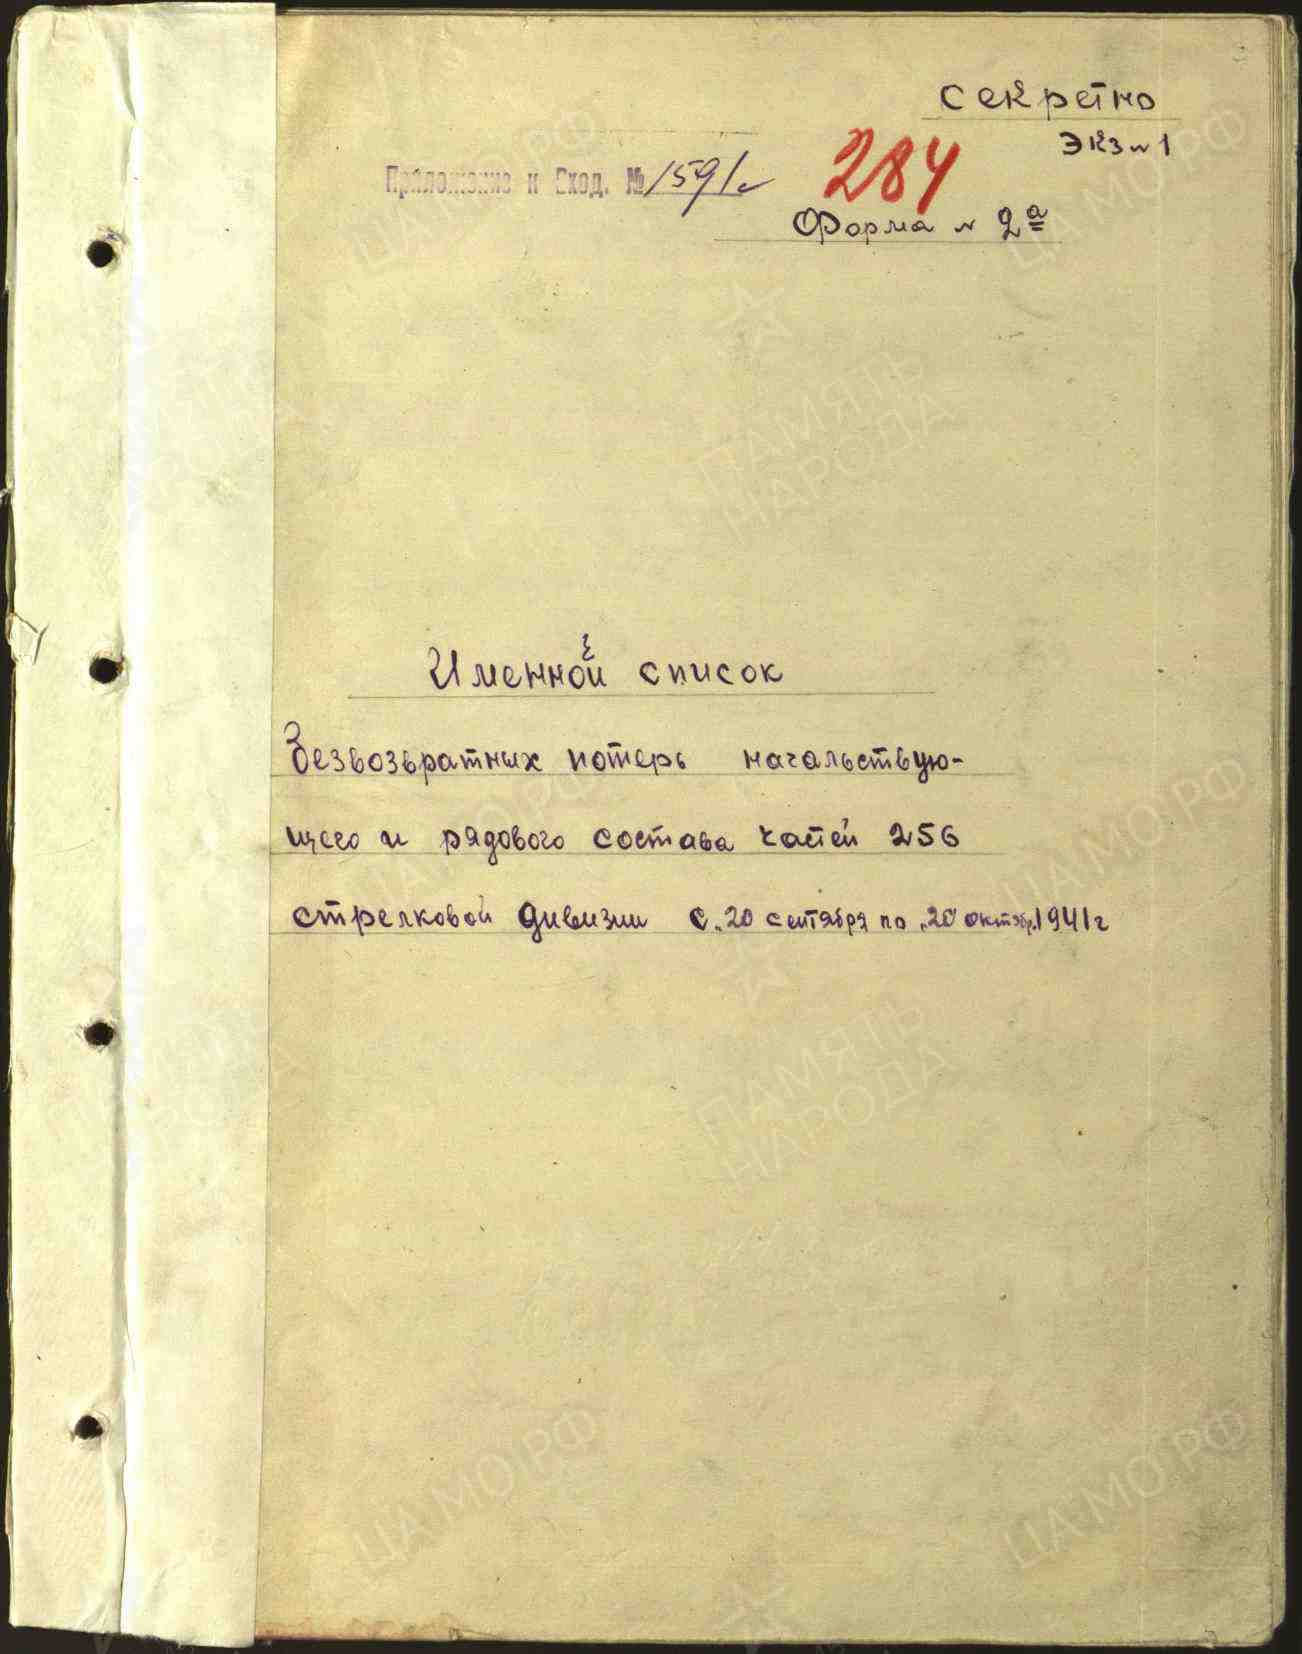 Секретно
Экз № 1
Приложение к Вход. № 1591с
284
Форма № 2а
Именной список
безвозвратных потерь начальствую-
щего и рядового состава частей 256
стрелковой дивизии с „20 сентября по „20 октябр. 1941 г
ЦАМО РФ
ПАМЯТЬ
НАРОДА